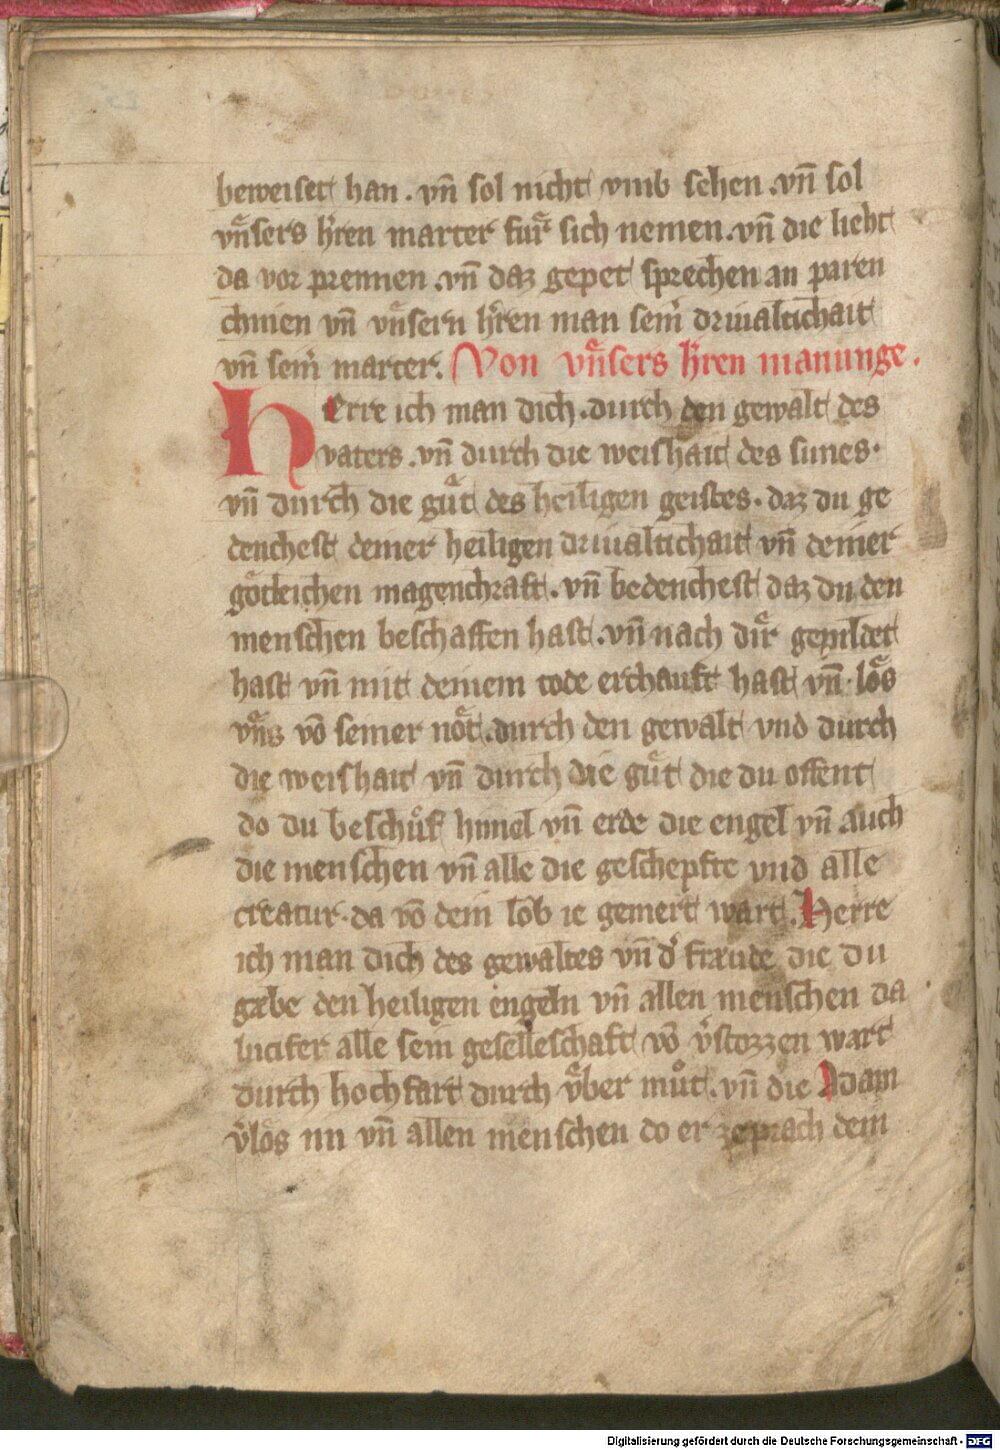 beweiset han. vn̄ sol nicht vmb sehen .vn̄ sol
vn̄sers hr̄en marter fuͤr sich nemen. vn̄ die lieht
da vor prennen .vn̄ daz gepet sprechen an paren
chnien vn̄ vn̄sern hr̄en man seiń driualtichait
vn̄ seiń marter. Von vn̄sers hr̄en manunge.
Herre ich man dich .durch den gewalt des
vaters .vn̄ durch die weishait des sunes.
vn̄ durch die guͤt des heiligen geistes. daz du ge
denchest deiner heiligen driualtichait vn̄ deiner
goͤtleichen magenchraft. vn̄ bedenchest daz du den
menschen beschaffen hast .vn̄ nach dir gepildet
hast vn̄ mit deinem tode erchauft hast vn̄ loͤs
vn̄s vō seiner noͤt .durch den gewalt vnd durch
die weishait vn̄ durch die guͤt die du offent
do du beschuͦf himel vn̄ erde die engel vn̄ auch
die menschen vn̄ alle die geschepfte vnd alle
creatur. da vō dein lob ie gemert wart. Herre
ich man dich des gewaltes vn̄ d' fraeude die du
gaebe den heiligen engeln vn̄ allen menschen da
lucifer alle sein geselleschaft vō v'stozzen wart
durch hochfart durch vͤber muͦt .vn̄ die Adam
v'los im vn̄ allen menschen do er zeprach dein
Digitalisierung gefördert durch die Deutsche Forschungsgemeinschaft - DFG